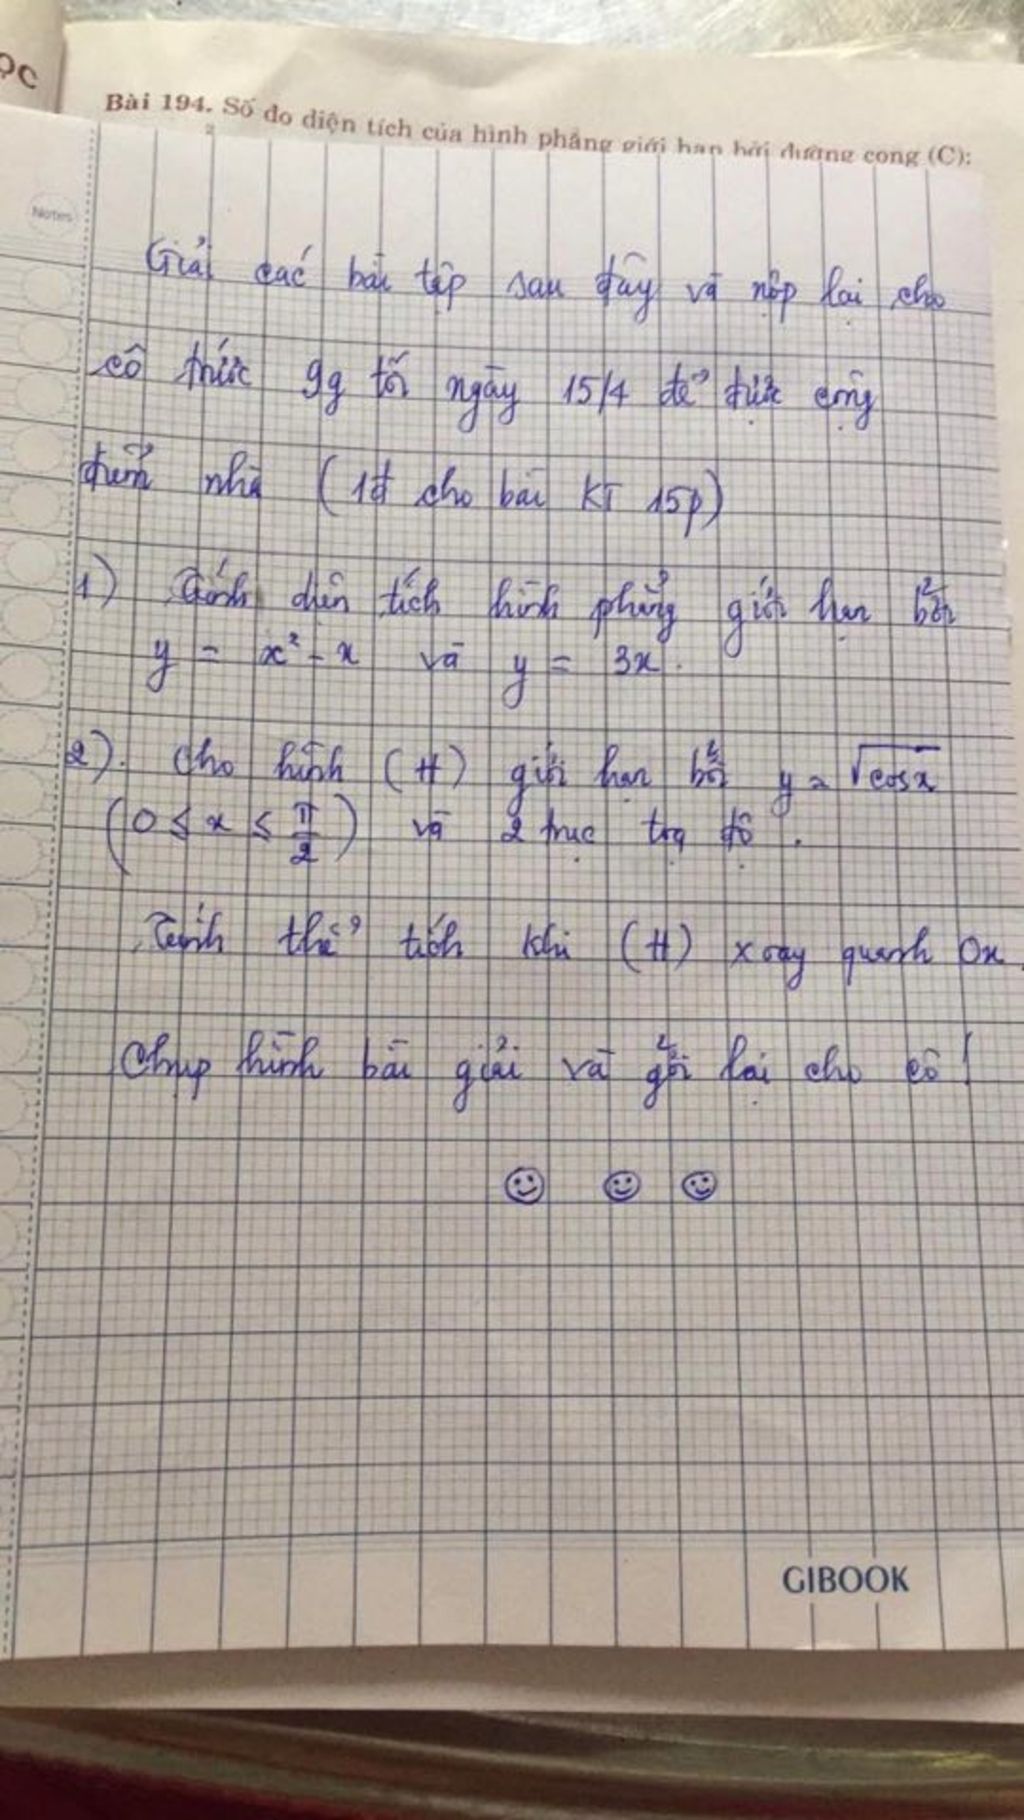 ỌC
Bài 194. Số đo diện tích của hình phẳng giới hạn bởi đường cong (C):
Notes
Giải các bài tập sau đây và nộp lại cho
cô trước 9g tối ngày 15/4 để được cộng
điểm nhà (1đ cho bài KT 15p)
1) Tính diện tích hình phẳng giới hạn bởi
y = x² - x và y = 3x.
2). Cho hình (H) giới hạn bởi y = √cosx
(0 ≤ x ≤ π/2) và 2 trục tọa độ.
Tính thể tích khi (H) xoay quanh Ox.
Chụp hình bài giải và gởi lại cho cô!
GIBOOK